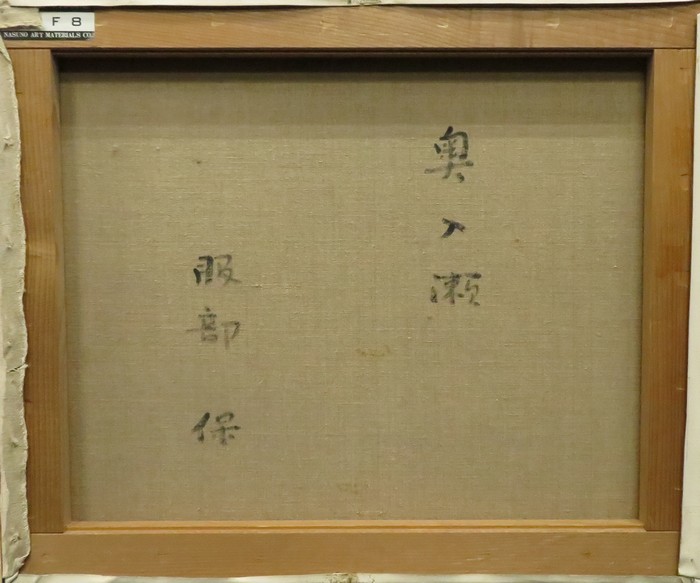 F 8
NASUNO ART MATERIALS CO.
奥入瀬
服部 保